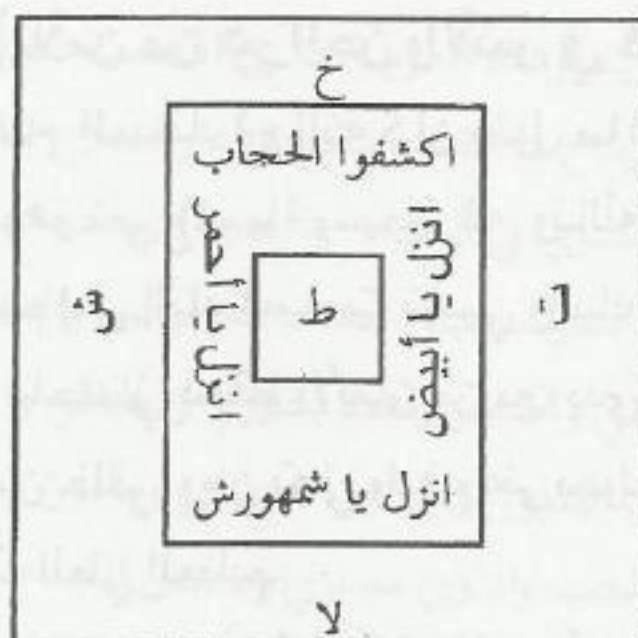 خ
اكشفوا الحجاب
انزل يا أبيض
ط
انزل يا أحمر
انزل يا شمهورش
لا